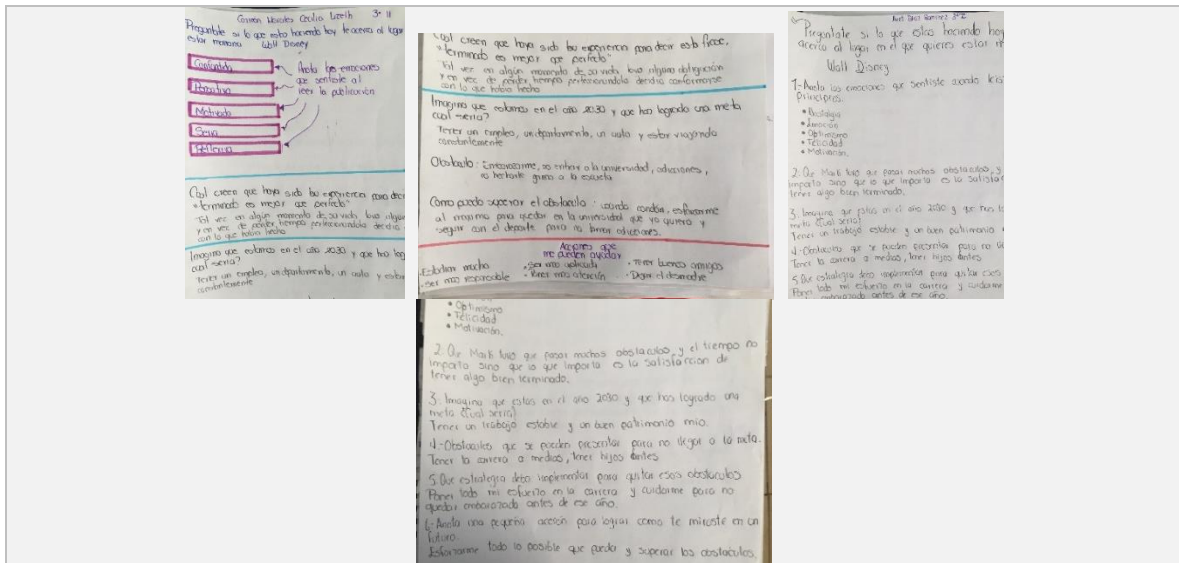 Carmón Morales Cecilia Lizeth 3° II
Preguntate si lo que esto haciendo hoy te acerca al lugar
estar mañana Walt Disney
Confundida
Pensativa
Motivada
Seria
Reflexiva
Anota las emociones
que sentiste al
leer la publicación
Cual creen que haya sido tu experiencia para decir
"terminado es mejor que perfecto"
Tal vez en algún momento de su vida, tuvo alguna
y en vez de perder tiempo perfeccionandola decidio
con lo que habia hecho
Imagina que estamos en el año 2030 y que haz log
cual seria?
Tener un empleo, un departamento, un auto y estar
constantemente
Cual creen que haya sido tu experiencia para decir esta frase,
"terminado es mejor que perfecto"
Tal vez en algún momento de su vida, tuvo alguna obligación
y en vez de perder tiempo perfeccionandola decidio conformarse
con lo que habia hecho
Imagina que estamos en el año 2030 y que haz logrado una meta
cual seria?
Tener un empleo, un departamento, un auto y estar viajando
constantemente
Obstaculo: Embarazarme, no entrar a la universidad, adicciones,
no hecharle ganas a la escuela
Como puedo superar el obstaculo: usando condón, esforzarme
al maximo para quedar en la universidad que yo quiero y
seguir con el deporte para no tener adicciones.
Acciones que
me pueden ayudar
- Estudiar mucho
- Ser mas aplicada
- Tener buenos amigos
- Ser mas responsable
- Poner mas atención
- Dejar el desmadre
Preguntate si lo que estas haciendo hoy
acerca al lugar en el que quieres estar m
Walt Disney
1-Anota las emociones que sentiste cuando leis
Principios.
• Nostalgia
• Emoción
• Optimismo
• Felicidad
• Motivación.
2. Que Mark tuvo que pasar muchos obstaculos, y
importa sino que lo que importa es la satisfac
tener algo bien terminado.
3. Imagina que estas en el año 2030 y que has lo
meta ¿Cual seria?
Tener un trabajo estable y un buen patrimonio
4-Obstaculos que se pueden presentar para no ll
Tener la carrera a medias, tener hijos antes
5. Que estrategia debo implementar para quitar esos
Poner todo mi esfuerzo en la carrera y cuidarme
embarazada antes de ese año.
• Optimismo
• Felicidad
• Motivación.
2. Que Mark tuvo que pasar muchos obstaculos, y el tiempo no
importa sino que lo que importa es la satisfaccion de
tener algo bien terminado.
3. Imagina que estas en el año 2030 y que has logrado una
meta ¿Cual seria?
Tener un trabajo estable y un buen patrimonio mio.
4-Obstaculos que se pueden presentar para no llegar a la meta.
Tener la carrera a medias, tener hijos antes
5. Que estrategia debo implementar para quitar esos obstaculos
Poner todo mi esfuerzo en la carrera y cuidarme para no
quedar embarazada antes de ese año.
6-Anota una pequeña accion para lograr como te miraste en un
futuro.
Esforzarme todo lo posible que pueda y superar los obstaculos.